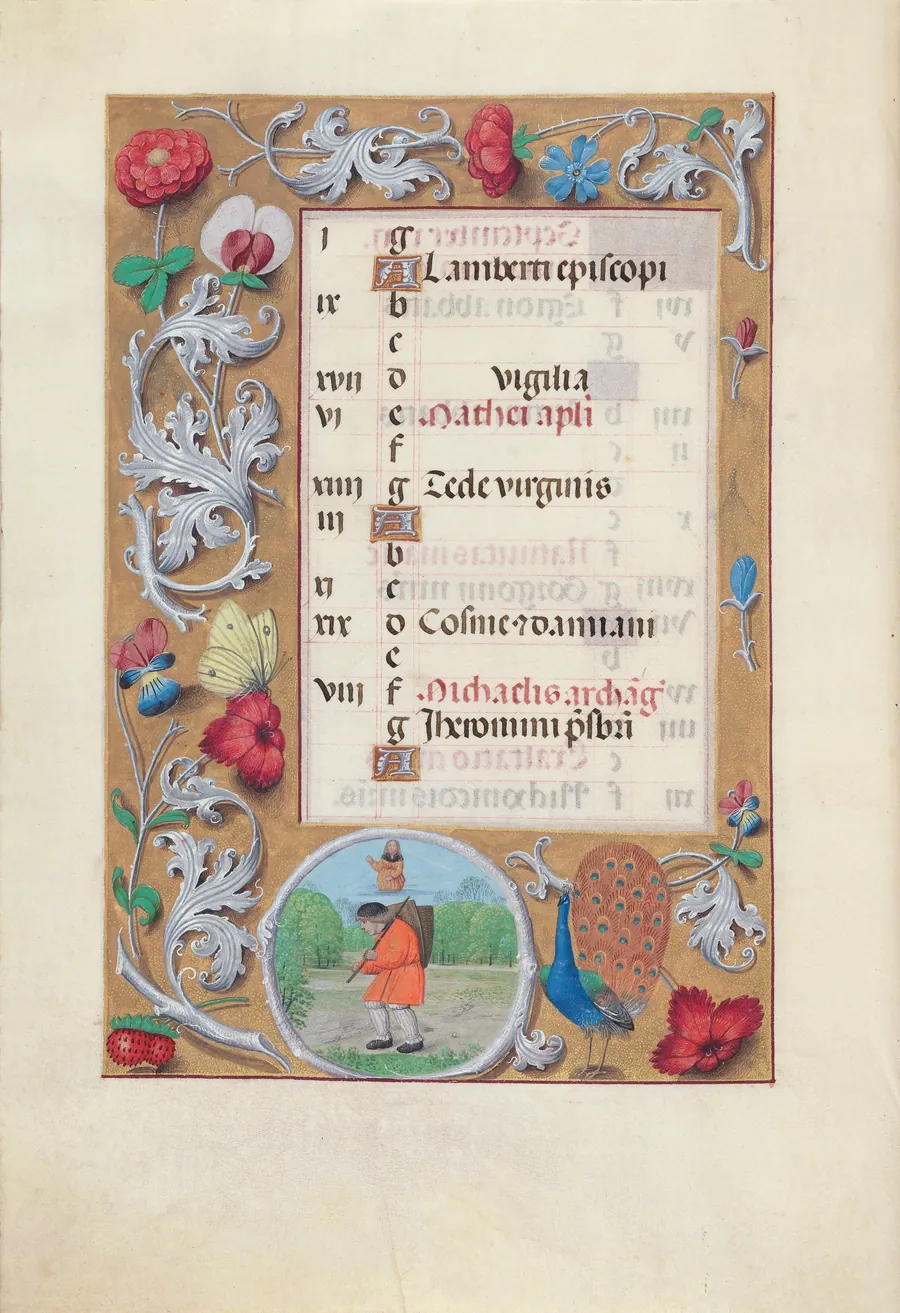 ı g
A Lamberti episcopi
ix b
c
xvii d vigilia
vi e Mathei apli
f
xiiii g Tecle virginis
iii A
b
xi c
xix d Cosme ⁊ damiani
e
viii f Michaelis archāg
g Iheronimi p̄sbri
A